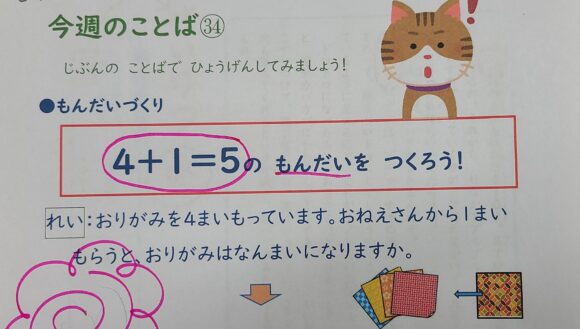 今週のことば㉞
じぶんの ことばで ひょうげんしてみましょう!
●もんだいづくり
4+1=5の もんだいを つくろう!
れい:おりがみを4まいもっています。おねえさんから1まい
もらうと、おりがみはなんまいになりますか。